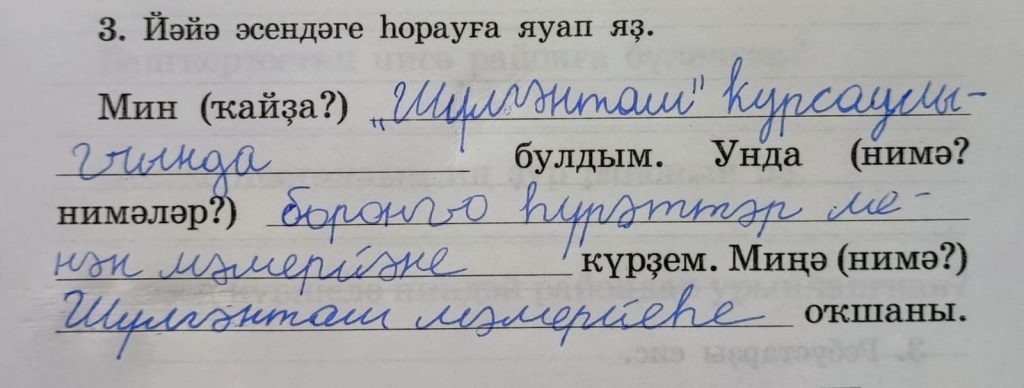 3. Йәйә эсендәге һорауға яуап яҙ.
Мин (ҡайҙа?) „Шүлгәнташ" ҡурсаулы-
ғында булдым. Унда (нимә?
нимәләр?) боронғо һүрәттәр ме-
нән мәмерйәне күрҙем. Миңә (нимә?)
Шүлгәнташ мәмерйеһе оҡшаны.